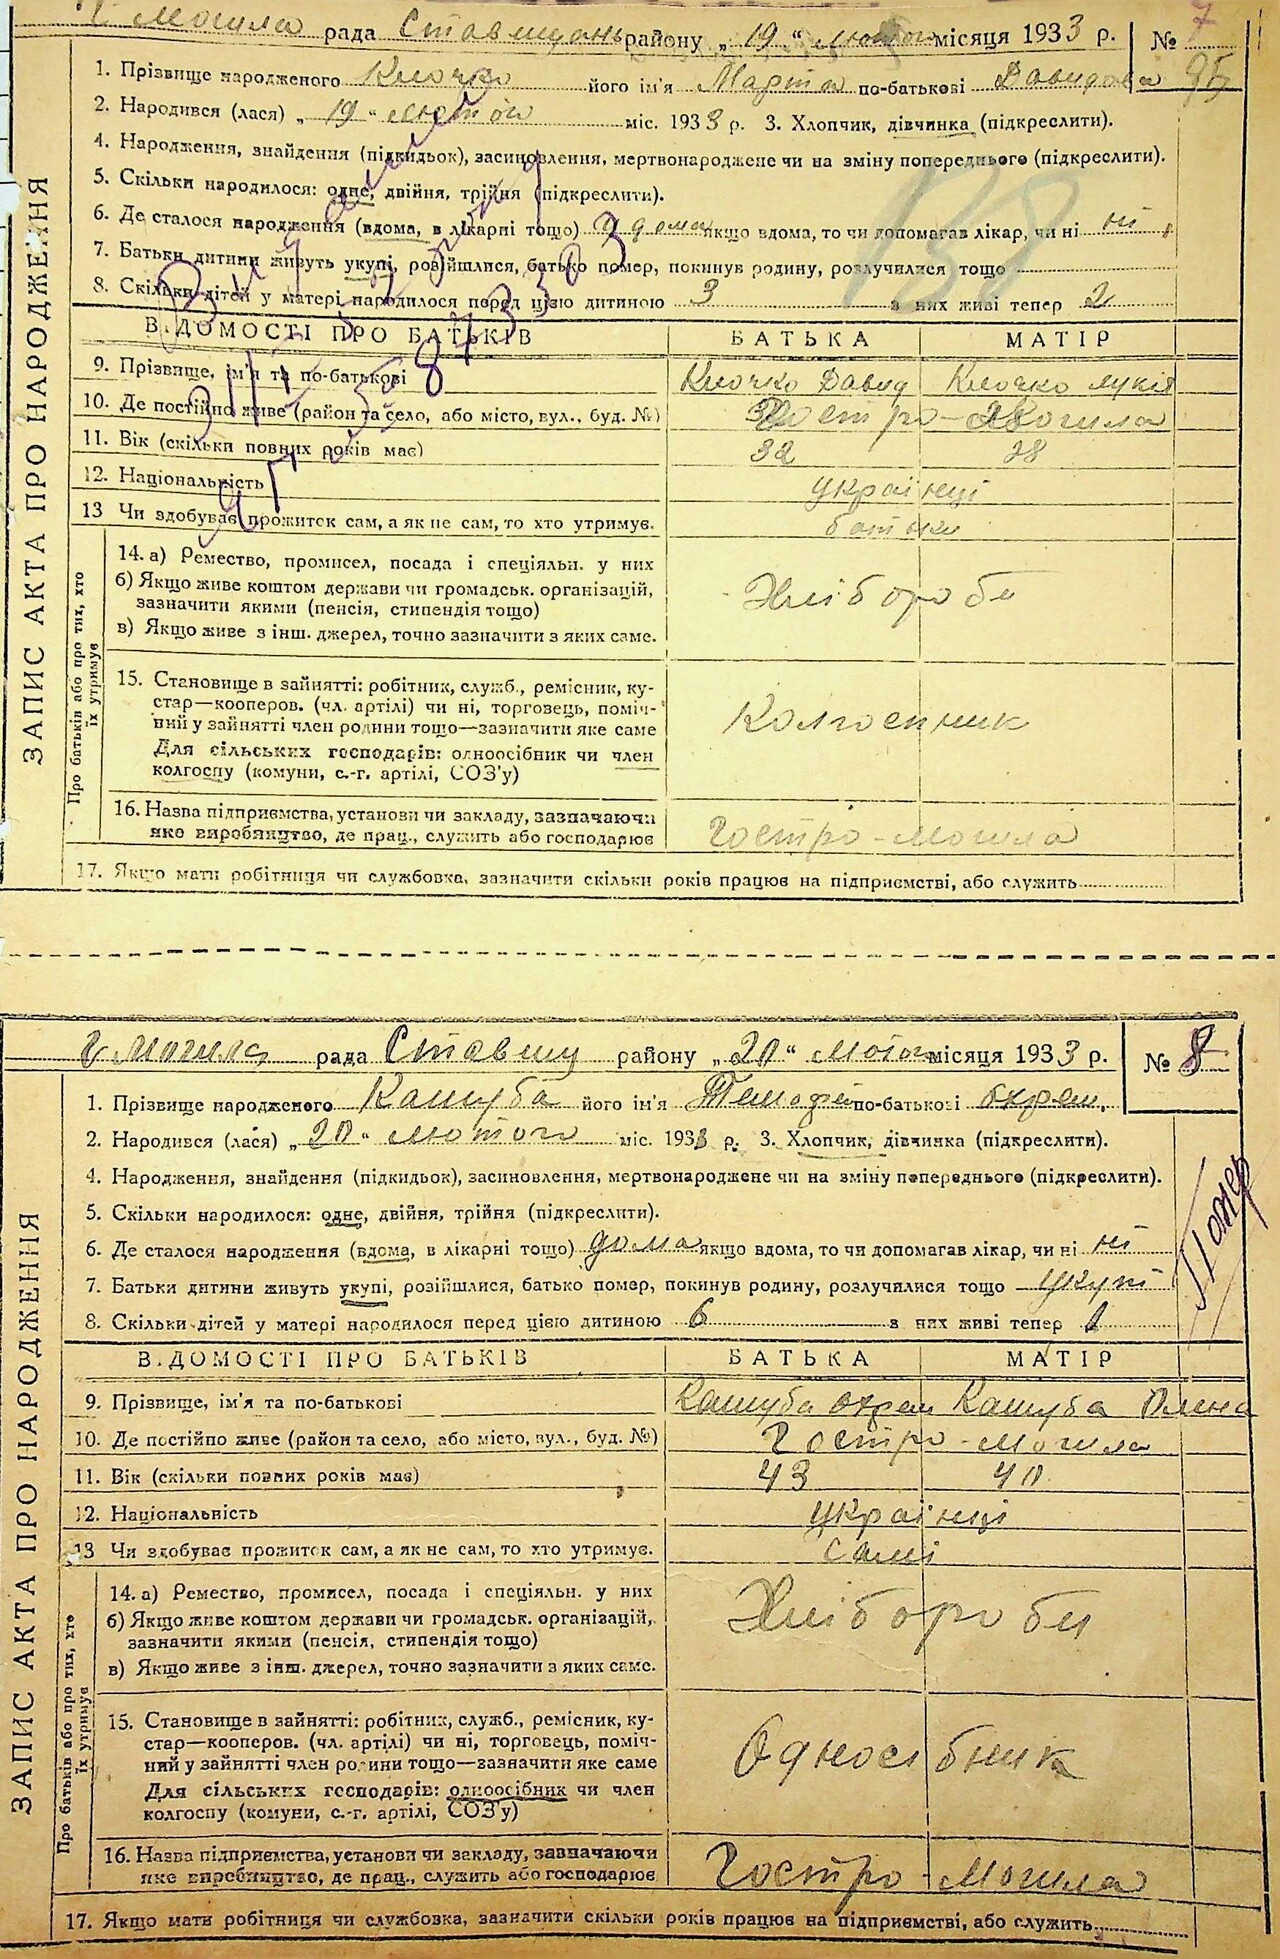 Г Могила рада Ставищань району „19“ лютого місяця 1933 р. № 7
1. Прізвище народженого Клочко його ім'я Марта по-батькові Давидова 95
2. Народився (лася) „19“ лютого міс. 1933 р. 3. Хлопчик, дівчинка (підкреслити).
4. Народження, знайдення (підкидьок), засиновлення, мертвонароджене чи на зміну попереднього (підкреслити).
5. Скільки народилося: одне, двійня, трійня (підкреслити).
6. Де сталося народження (вдома, в лікарні тощо) дома якщо вдома, то чи допомагав лікар, чи ні ні
7. Батьки дитини живуть укупі, розійшлися, батько помер, покинув родину, розлучилися тощо
8. Скільки дітей у матері народилося перед цією дитиною 3 з них живі тепер 2
138
ЗАПИС АКТА ПРО НАРОДЖЕННЯ
ВІДОМОСТІ ПРО БАТЬКІВ БАТЬКА МАТІР
9. Прізвище, ім'я та по-батькові Клочко Давид Клочко Лукія
10. Де постійно живе (район та село, або місто, вул., буд. №) Гостро-Могила
11. Вік (скільки повних років має) 32 28
12. Національність українці
13 Чи здобуває прожиток сам, а як не сам, то хто утримує. батьки
Про батьків або про тих, хто їх утримує
14. а) Ремество, промисел, посада і спеціяльн. у них
б) Якщо живе коштом держави чи громадськ. організацій, Хлібороби
зазначити якими (пенсія, стипендія тощо)
в) Якщо живе з інш. джерел, точно зазначити з яких саме.
15. Становище в зайнятті: робітник, служб., ремісник, ку-
стар—кооперов. (чл. артілі) чи ні, торговець, поміч-
ний у зайнятті член родини тощо—зазначити яке саме Колгоспник
Для сільських господарів: одноосібник чи член
колгоспу (комуни, с.-г. артілі, СОЗ'у)
16. Назва підприємства, установи чи закладу, зазначаючи
яке виробництво, де прац., служить або господарює Гостро-Могила
17. Якщо мати робітниця чи службовка, зазначити скільки років працює на підприємстві, або служить
Г Могила рада Ставищ району „20“ лютого місяця 1933 р. № 8
1. Прізвище народженого Кашуба його ім'я Темофій по-батькові Охрем.
2. Народився (лася) „20“ лютого міс. 1933 р. 3. Хлопчик, дівчинка (підкреслити).
4. Народження, знайдення (підкидьок), засиновлення, мертвонароджене чи на зміну попереднього (підкреслити).
5. Скільки народилося: одне, двійня, трійня (підкреслити).
6. Де сталося народження (вдома, в лікарні тощо) дома якщо вдома, то чи допомагав лікар, чи ні ні
7. Батьки дитини живуть укупі, розійшлися, батько помер, покинув родину, розлучилися тощо укупі
8. Скільки дітей у матері народилося перед цією дитиною 6 з них живі тепер 1
Помер
ЗАПИС АКТА ПРО НАРОДЖЕННЯ
ВІДОМОСТІ ПРО БАТЬКІВ БАТЬКА МАТІР
9. Прізвище, ім'я та по-батькові Кашуба Охрем Кашуба Олена
10. Де постійно живе (район та село, або місто, вул., буд. №) Гостро-Могила
11. Вік (скільки повних років має) 43 40
12. Національність українці
13 Чи здобуває прожиток сам, а як не сам, то хто утримує. самі
Про батьків або про тих, хто їх утримує
14. а) Ремество, промисел, посада і спеціяльн. у них
б) Якщо живе коштом держави чи громадськ. організацій, Хлібороби
зазначити якими (пенсія, стипендія тощо)
в) Якщо живе з інш. джерел, точно зазначити з яких саме.
15. Становище в зайнятті: робітник, служб., ремісник, ку-
стар—кооперов. (чл. артілі) чи ні, торговець, поміч-
ний у зайнятті член родини тощо—зазначити яке саме Односібник
Для сільських господарів: одноосібник чи член
колгоспу (комуни, с.-г. артілі, СОЗ'у)
16. Назва підприємства, установи чи закладу, зазначаючи
яке виробництво, де прац., служить або господарює Гостро-Могила
17. Якщо мати робітниця чи службовка, зазначити скільки років працює на підприємстві, або служить